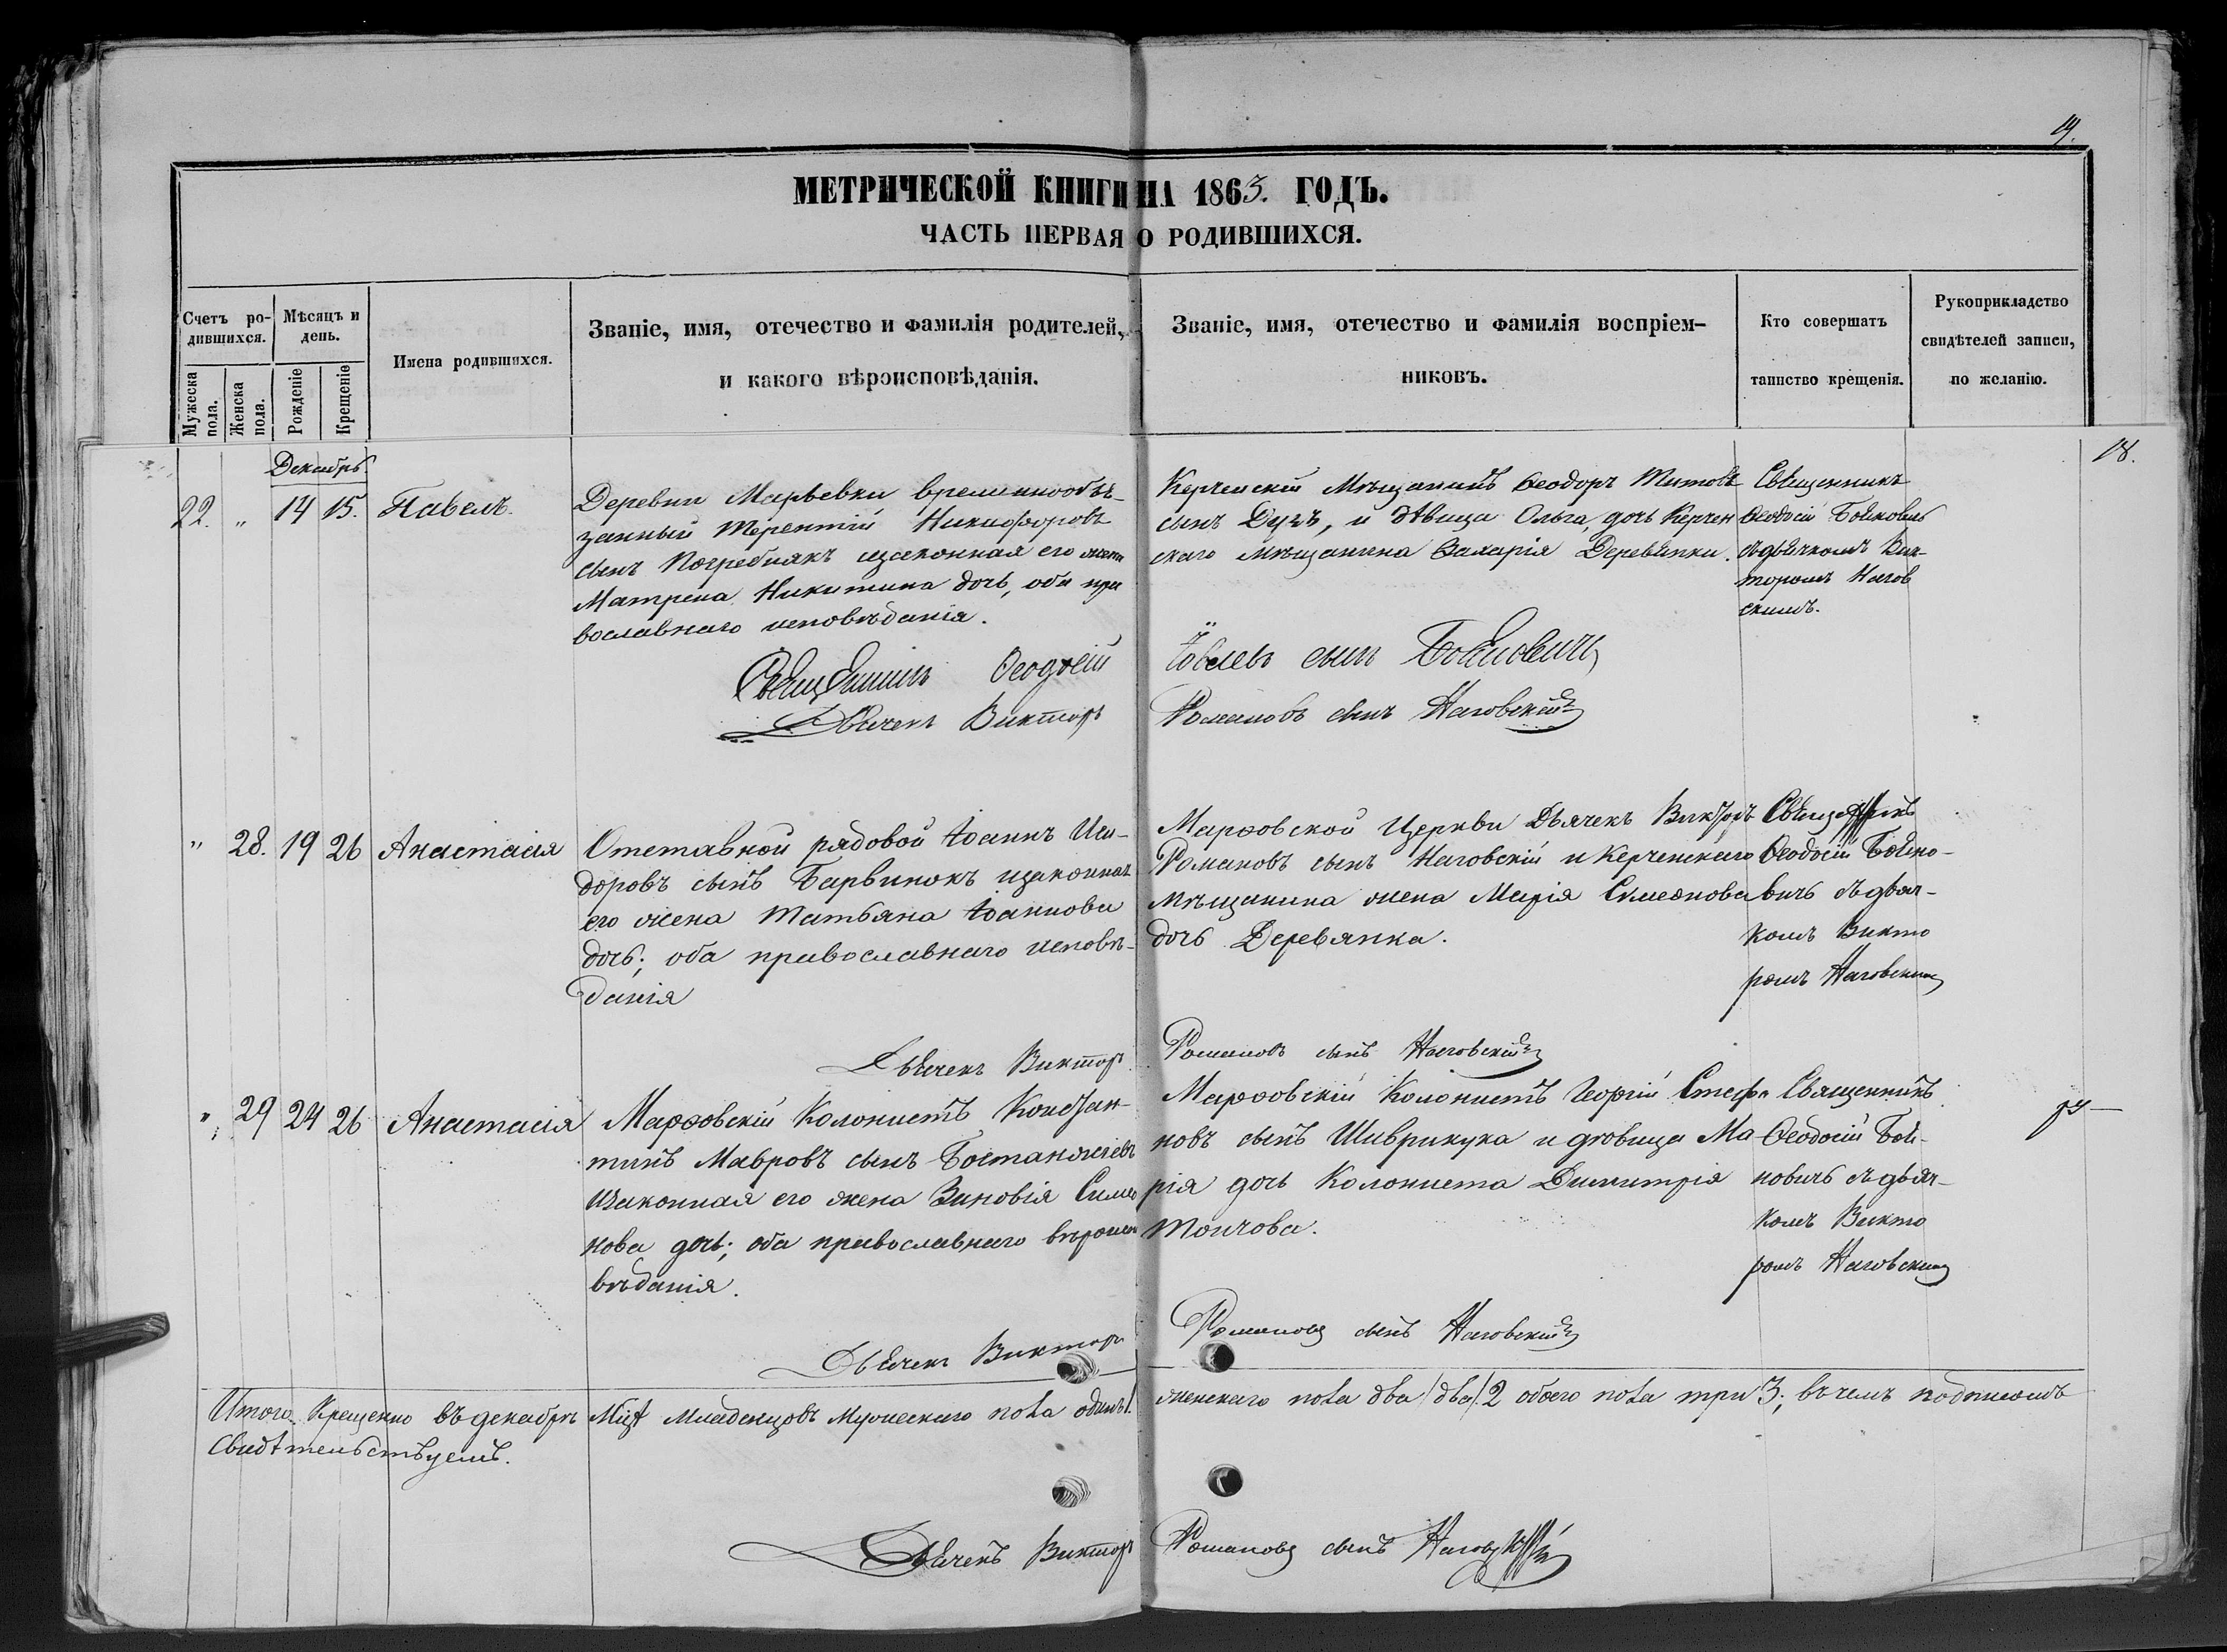 19.
МЕТРИЧЕСКОЙ КНИГИ НА 1863. ГОДЪ.
ЧАСТЬ ПЕРВАЯ О РОДИВШИХСЯ.
Счетъ ро-
дившихся.
Мужеска
пола.
Женска
пола.
Мѣсяцъ и
день.
Рожденіе
Крещеніе
Имена родившихся.
Званіе, имя, отечество и фамилія родителей,
и какого вѣроисповѣданія.
Званіе, имя, отечество и фамилія воспріем-
никовъ.
Кто совершатъ
таинство крещенія.
Рукоприкладство
свидѣтелей записи,
по желанію.
18.
Декабрь.
22. " 14 15. Павелъ.
Деревни Марьевки временнообя-
занный Терентій Никифоровъ
сынъ Погребнякъ изаконная его жена
Матрена Никитина дочь, оба пра
вославнаго исповѣданія.
Керченскій Мѣщанинъ Ѳеодоръ Титовъ
сынъ Дузъ, и дѣвица Ольга, дочь Керчен
скаго мѣщанина Захарія Деревянки.
Священникъ
Ѳеодосій Бойковичъ
съдьячкомъ Вик-
торомъ Нагов
скимъ.
Священникъ Ѳеодосій Іовлевъ сынъ Бойковичъ
Дьячекъ Викторъ Романовъ сынъ Наговскій
" 28. 19 26 Анастасія
Отставной рядовой Іоаннъ Иси-
доровъ сынъ Барвинокъ изаконная
его жена Татьяна Іоаннова
дочь; оба православнаго исповѣ-
данія
Марфовской Церкви Дьячекъ Викторъ
Романовъ сынъ Наговскій и Керченскаго
мѣщанина жена Марія Симеонова
дочь Деревянка.
Священникъ
Ѳеодосій Бойко-
вичъ съдьяч-
комъ Викто
ромъ Наговскимъ
Дьячекъ Викторъ Романовъ сынъ Наговскій
" 29 24 26 Анастасія
Марфовскій Колонистъ Констан-
тинъ Мавровъ сынъ Бостанжіевъ
изаконная его жена Зиновія Симео
нова дочь; оба православнаго вѣроиспо
вѣданія.
Марфовскій Колонистъ Георгій Стефа
новъ сынъ Шиврикука и дѣвица Ма
рія дочь Колониста Димитрія
Тончова.
Священникъ
Ѳеодосій Бой-
ковичъ съдьяч-
комъ Викто
ромъ Наговскимъ
Дьячекъ Викторъ Романовъ сынъ Наговскій
Итого Крещенно въ декабрѣ Мцѣ Младенцовъ Мужескаго пола одинъ 1. женскаго пола два /два/ 2 обоего пола три 3; въ чемъ подписомъ
Свидѣтельствуемъ.
Дьячекъ Викторъ Романовъ сынъ Наговскій